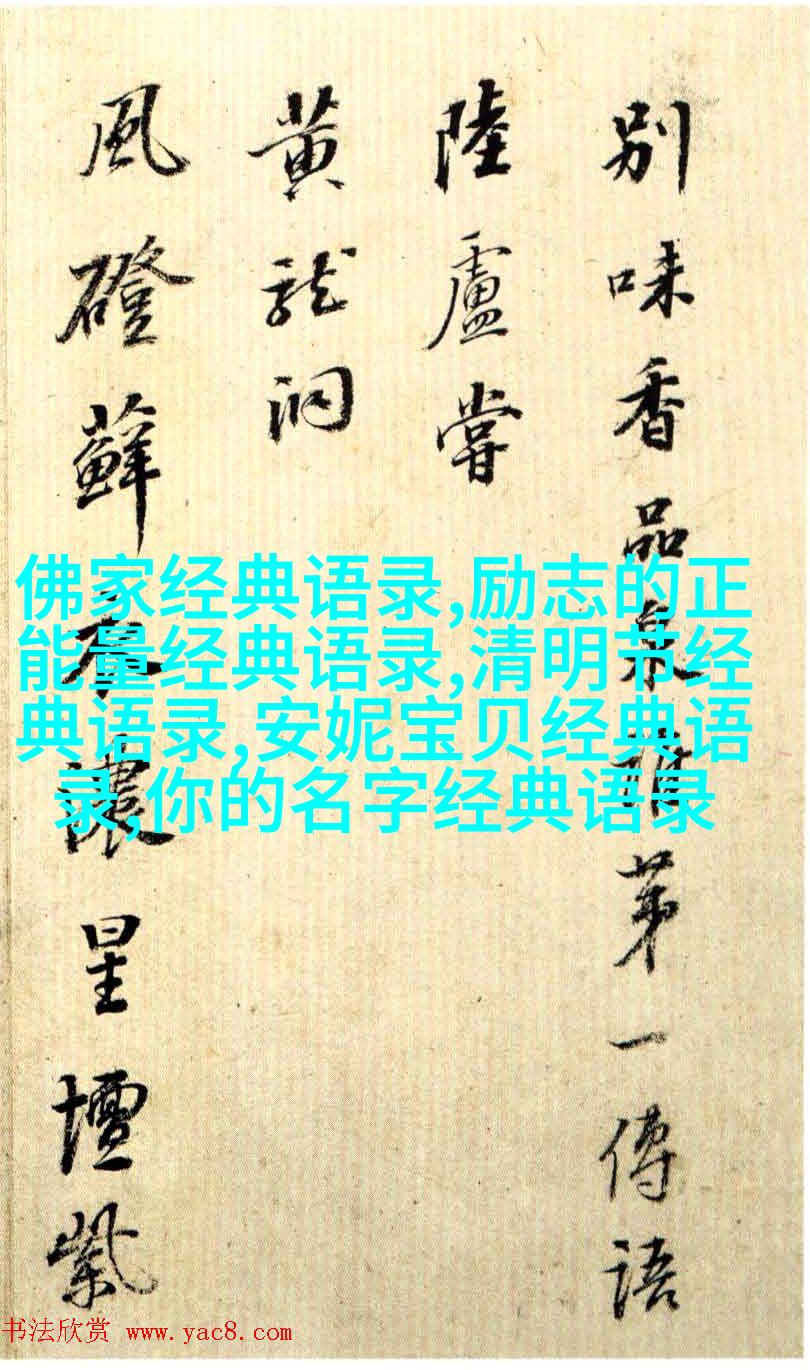 別味香品泉第一傳語
陸盧嘗
黃龍洞
風磴蘚濃星壇紫
佛家经典语录,励志的正
能量经典语录,清明节经
典语录,安妮宝贝经典语
录,你的名字经典语录
书法欣赏 www.yac8.com